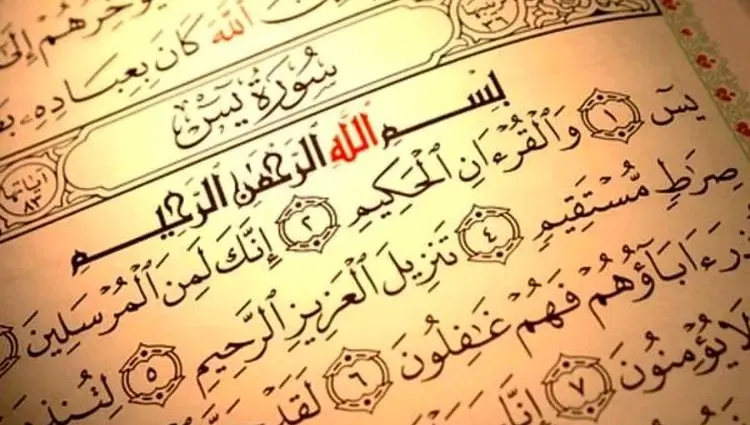 يُؤَخِّرُهُمْ إِلَىٰ
ٱللَّهَ كَانَ بِعِبَادِهِۦ
ترتيبها ٣٦ سُورَةُ يسٓ آياتها ٨٣
بِسْمِ ٱللَّهِ ٱلرَّحْمَٰنِ ٱلرَّحِيمِ
يسٓ ١ وَٱلْقُرْءَانِ ٱلْحَكِيمِ ٢ إِنَّكَ لَمِنَ ٱلْمُرْسَلِينَ
صِرَٰطٍ مُّسْتَقِيمٍ ٤ تَنزِيلَ ٱلْعَزِيزِ ٱلرَّحِيمِ ٥ لِتُنذِ
ذِرَ ءَابَآؤُهُمْ فَهُمْ غَٰفِلُونَ ٦ لَقَدْ
لَا يُؤْمِنُونَ ٧ إِنَّا